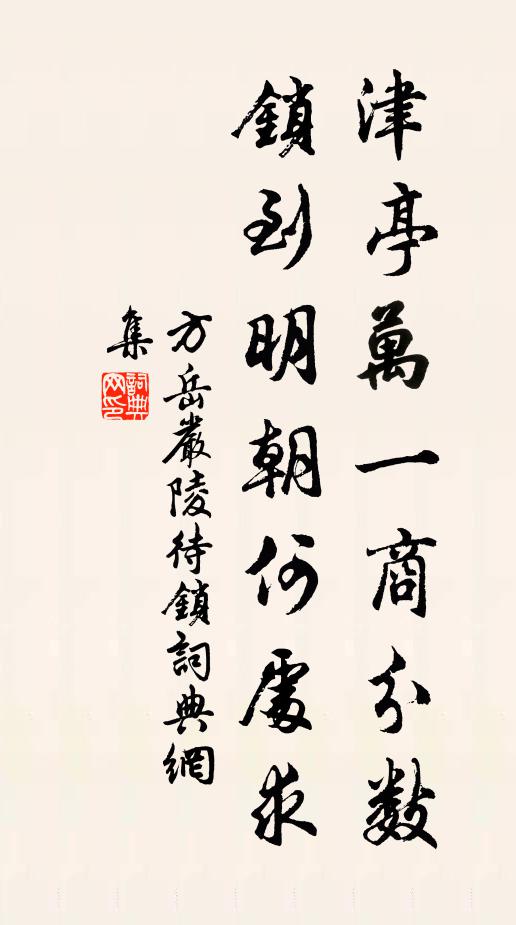 津亭萬一商分數
鎖到明朝何處求
方岳嚴陵待鎖詞典網
集
詞典
网印